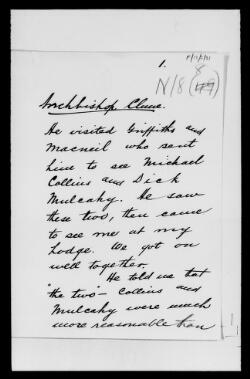 1.
N/8 (49)
8
Archbishop Clune.
He visited Griffiths and
Macneil who sent
him to see Michael
Collins and Dick
Mulcahy. He saw
these two, then came
to see me at my
Lodge. We got on
well together.
He told me that
"the two" – Collins and
Mulcahy were much
more reasonable than